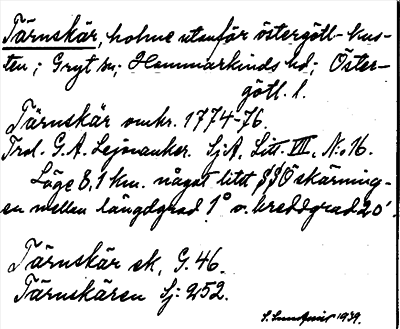 Tärnskär, holme utanför östergötl. kus-
ten; Gryt sn; Hammarkinds hd; Öster-
götl. l.
Tärnskär omkr. 1774-76.
Trol. G. A. Lejonanker. SjA, Litt. VII, N:o 16.
Läge 8,1 km. något litet SSÖ skärning-
en mellan längdgrad 1° o. breddgrad 20'.
Tärnskär ek, G. 46.
Tärnskären Sj: 252.
S. Sundqvist 1939.